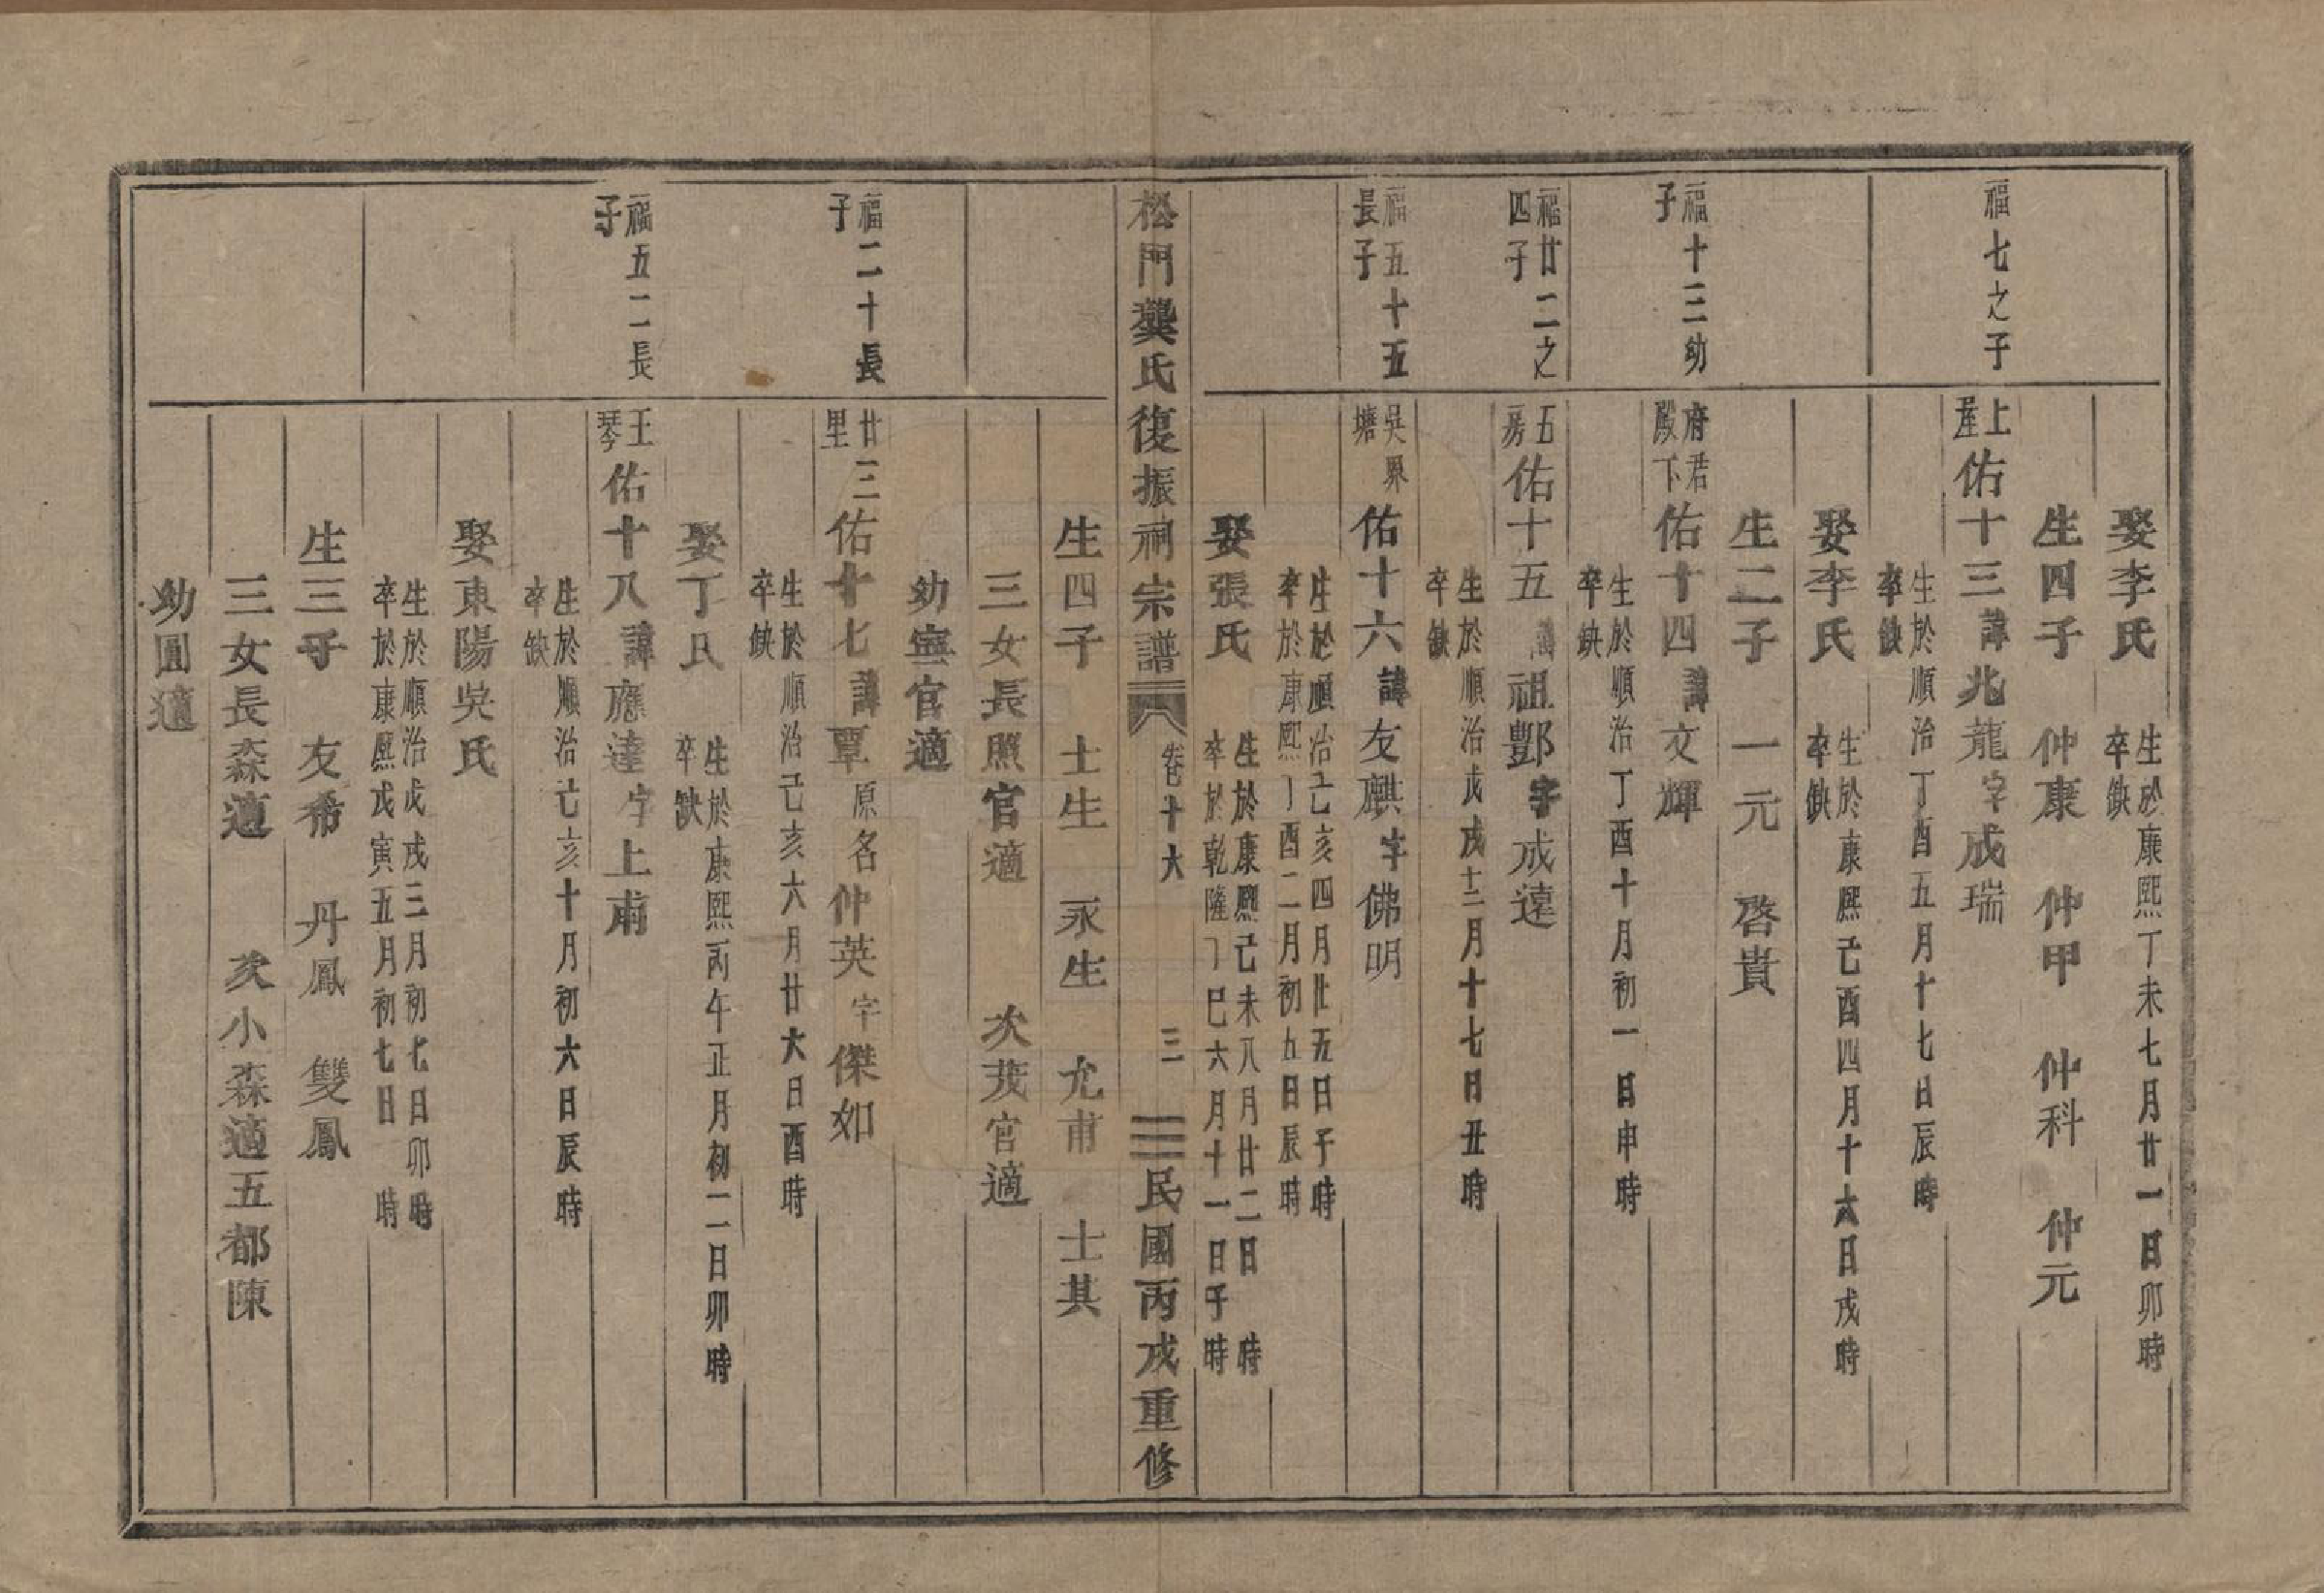 娶李氏
生於康熙丁未七月廿一日卯時
卒缺
生四子 仲康 仲甲 仲科 仲元
福七之子
上屋
佑十三諱兆龍字成瑞
生於順治丁酉五月十七日辰時
卒缺
娶李氏
生於康熙己酉四月十六日戌時
卒缺
生二子 一元 啓貴
福十三幼
子
府君
殿下
佑十四諱文輝
生於順治丁酉十月初一日申時
卒缺
福廿二之
四子
五
房
佑十五諱祖酆字成遠
生於順治戊戌十二月十七日丑時
卒缺
福五十五
長子
吳界
塘
佑十六諱友麒字佛明
生於順治己亥四月廿五日子時
卒於康熙丁酉二月初九日辰時
娶張氏
生於康熙己未八月廿二日 時
卒於乾隆丁巳六月十一日子時
松門龔氏復振祠宗譜 卷十六 三 民國丙戌重修
生四子 士生 永生 允甫 士其
三女長照官適 次茂官適
幼寧官適
福二十長
子
廿三
里
佑十七諱覃原名仲英字傑如
生於順治己亥六月廿六日酉時
卒缺
娶丁氏
生於康熙丙午正月初二日卯時
卒缺
福五二長
子
王
琴
佑十八諱應達字上甫
生於順治己亥十月初六日辰時
卒缺
娶東陽吳氏
生於順治戊戌三月初七日卯時
卒於康熙戊寅五月初七日 時
生三子 友希 丹鳳 雙鳳
三女長森適 次小森適五都陳
幼圓適